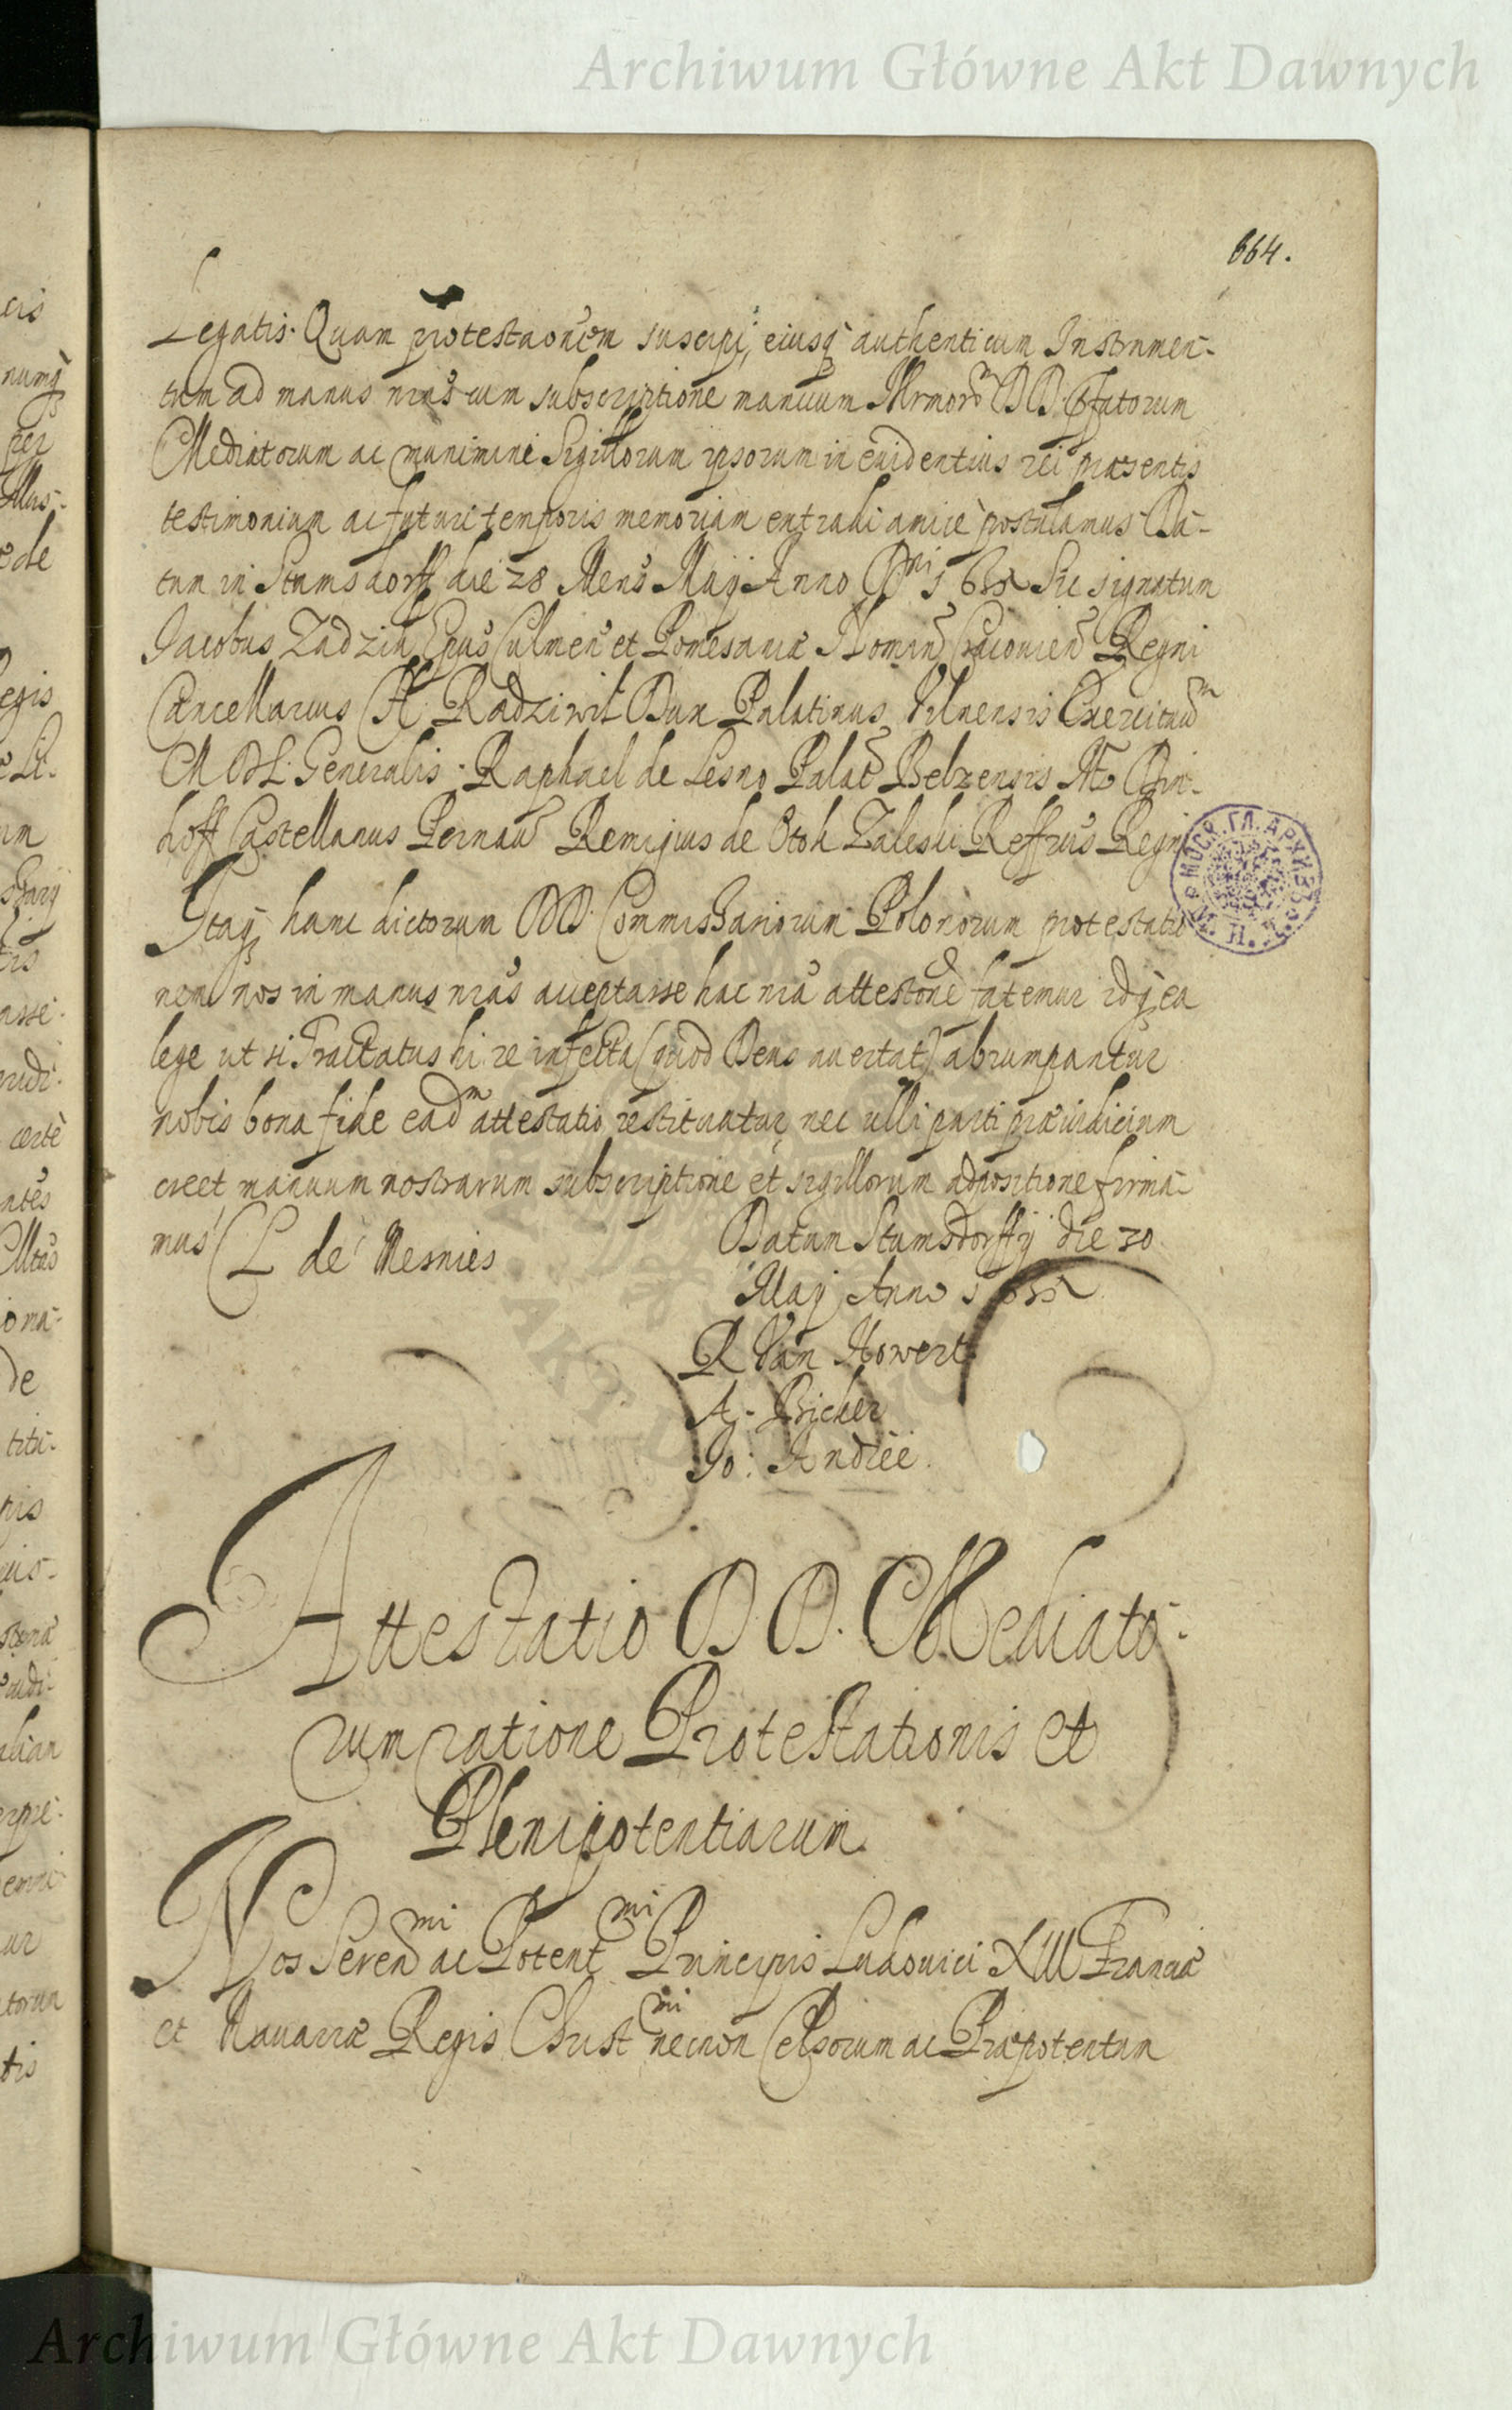 Archiwum Główne Akt Dawnych
664.
Legatis. Quam protestaōnem suscipi, eiusq; authenticum Instrumen-
tum ad manus nr̄as cum subscriptione manuum Illrmorum DD. Pffatorum
Mediatorum ac munimine Sigillorum ipsorum in evidentius rei præsentis
testimonium ac futuri temporis memoriam extradi amicè postulamus Da-
tum in Stumsdorff die 28 Mens Maij Anno Dni 1635 Sic signatum
Jacobus Zadzik Epus Culmen et Pomesaniæ Nomin Cracovien Regni
Cancellarius Ch Radziwil Dux Palatinus Vilnensis Exercituum
M D L Generalis. Raphael de Lesno Palat Belzensis M. Din-
hoff Castellanus Pernav Remigius de Otok Zaleski Reffrus Regni
Itaq; hanc dictorum DD. Commissariorum Polonorum protestatio
nem nos in manus nr̄as acceptasse hac nr̄a attestōne fatemur idq; ea
lege ut si Tractatus hi re infecta (quod Deus avertat) abrumpantur
nobis bona fide eadm attestatio restituatur nec ulli parti præiudicium
creet manuum nostrarum subscriptione et sigillorum adpositione firma-
mus
Datum Stumsdorffij die 30
C L de Mesmes
Maij Anno 1635
R Van Howert
A. Bicker
Jo: Andreè.
Attestatio DD. Mediato-
rum ratione Protestationis et
Plenipotentiarum
Nos Serenmi ac Potentmi Principis Ludovici XIII Franciæ
et Navarræ Regis Christmi necnon Celsorum ac Præpotentum
МОСК. ГЛ. АРХИВЪ
Archiwum Główne Akt Dawnych